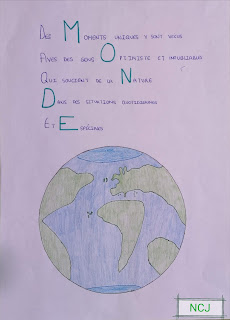 Des Moments uniques y sont vécus
Avec des gens Optimiste et inoubliable
Qui soucient de la Nature
Dans des situations
Et Espècines
NCJ